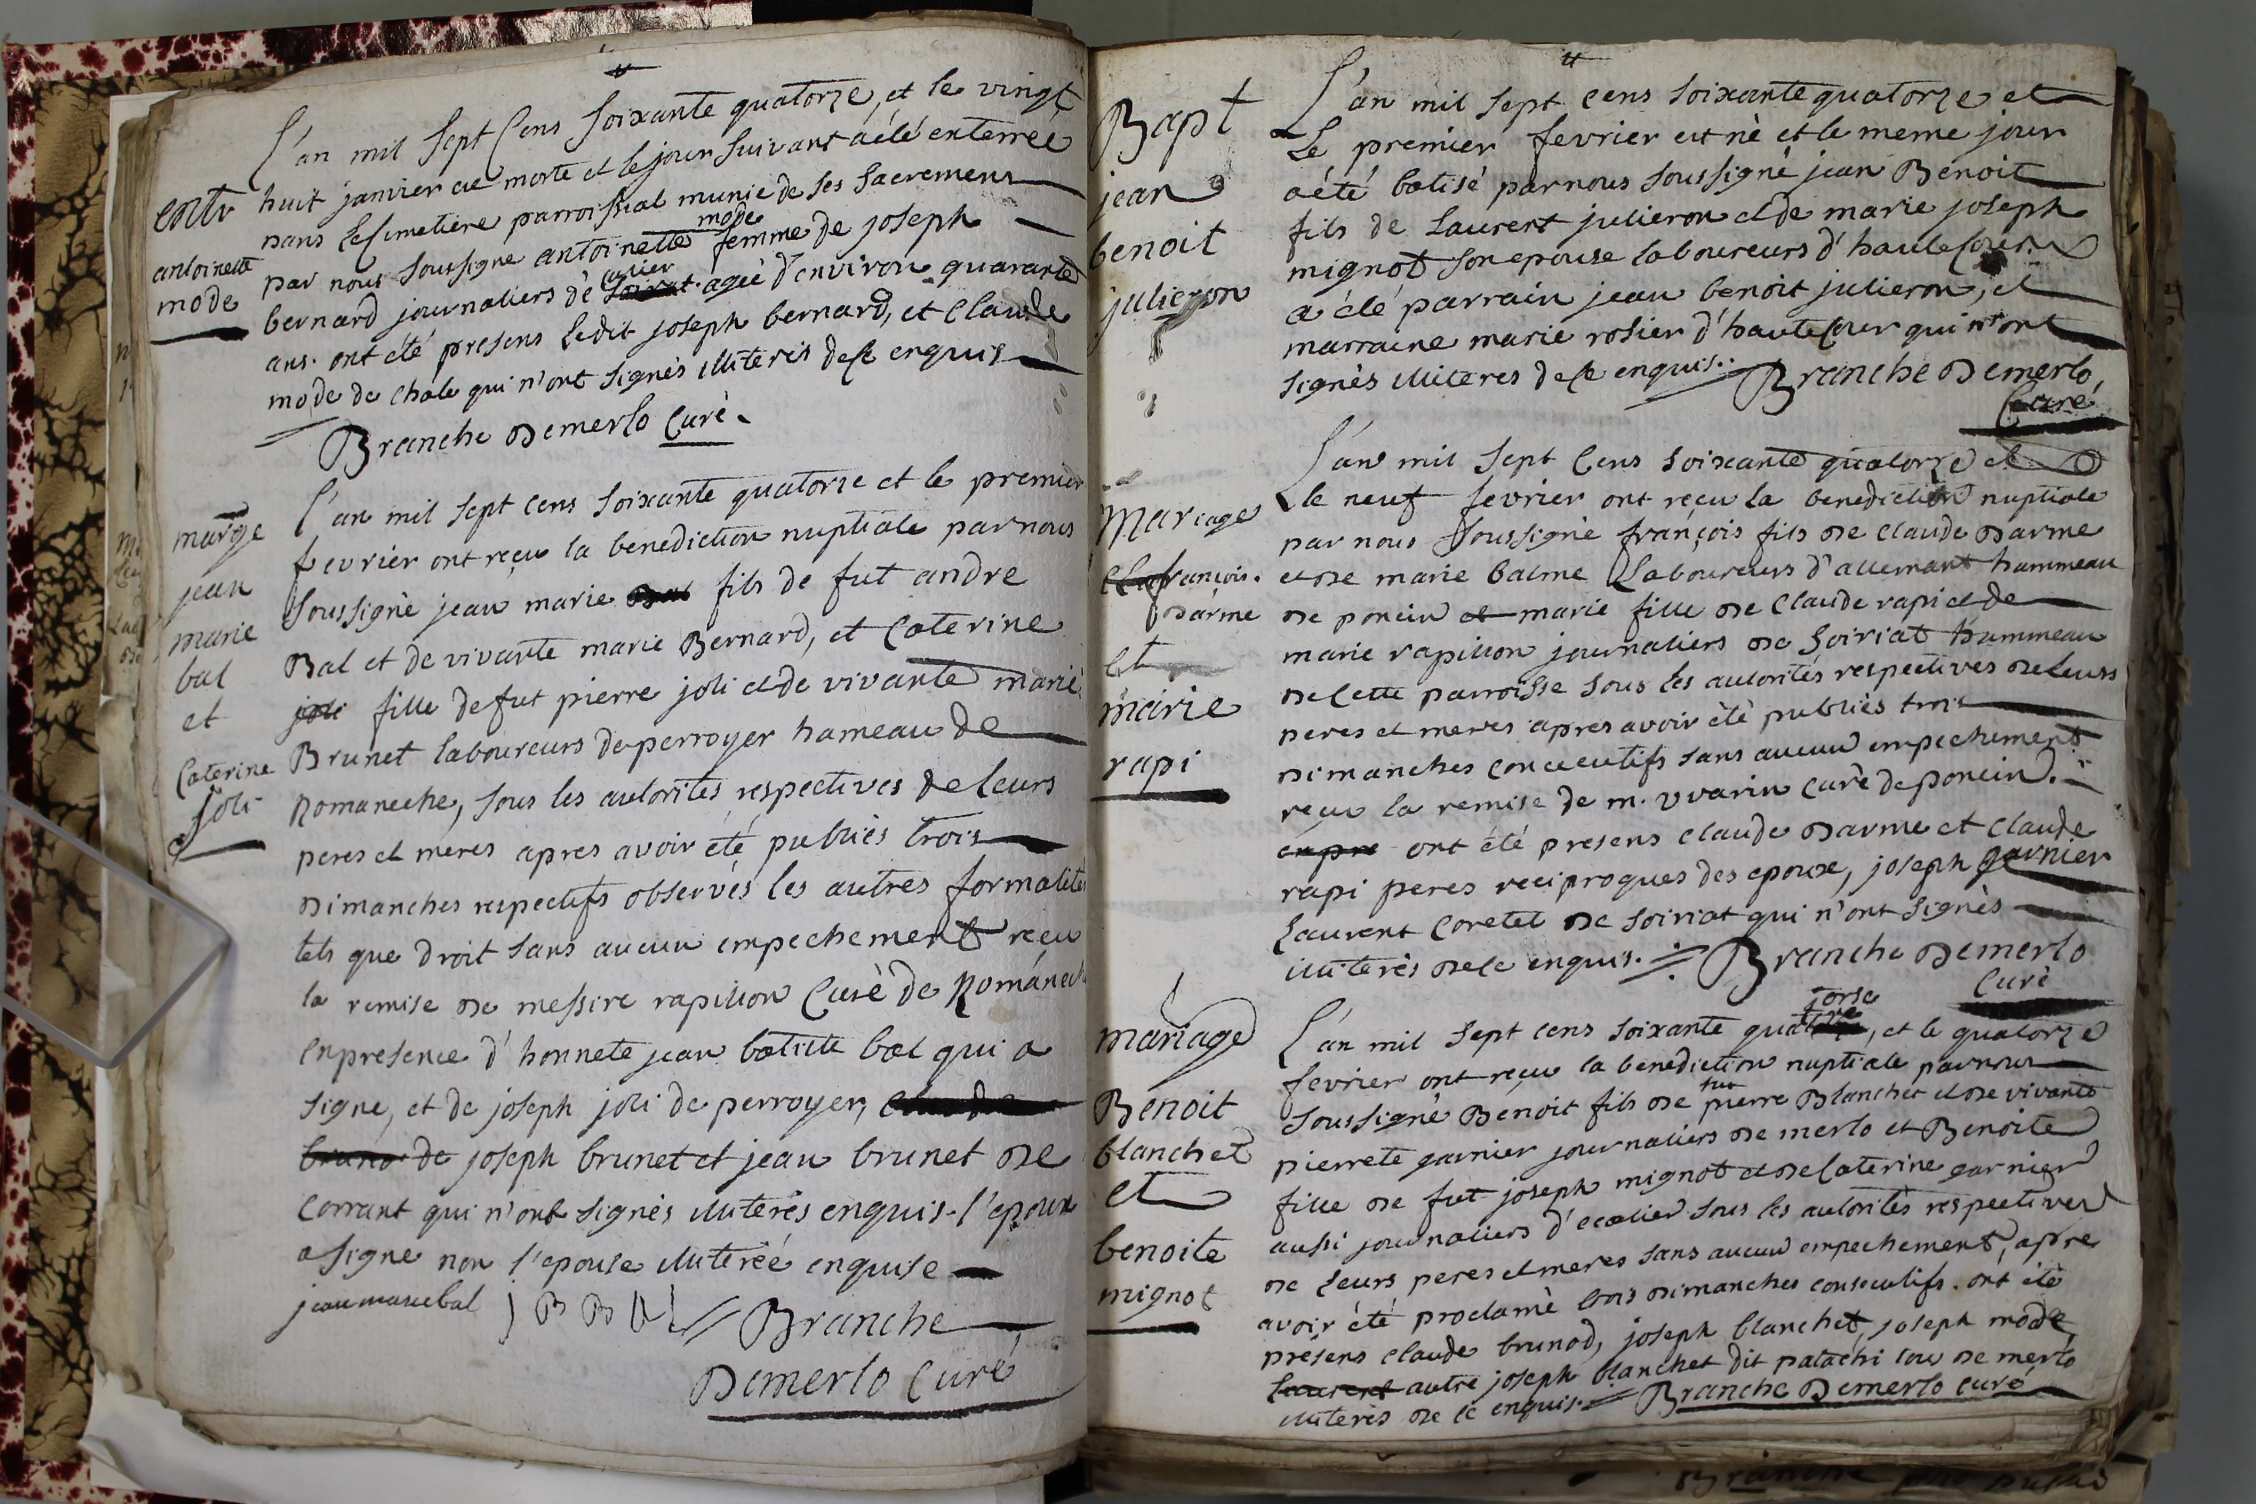 L'an mil sept cens soixante quatorze, et le vingt
entr huit janvier est morte et le jour suivant a été enterrée
dans le cimetière parroissial munie de ses sacremens
mode
antoinette par nous soussigné antoinette femme de joseph
carier
mode bernard journaliers de agée d'environ quarante
ans. ont été presens ledit joseph bernard, et claude
mode de chale qui n'ont signés illiterés de ce enquis
Branche Demerlo Curé
L'an mil sept cens soixante quatorze et le premier
marge fevrier ont reçu la benediction nuptiale par nous
jean soussigné jean marie bal fils de fut andre
marie Bal et de vivante marie Bernard, et Caterine
bal joli fille de fut pierre joli et de vivante marie
et Brunet laboureurs de perroyer hameau de
Caterine Romaneche, sous les autorités respectives de leurs
joli peres et meres apres avoir été publiés trois
Dimanches respectifs observés les autres formalités
tels que droit sans aucun empechement reçu
la remise de messire rapillon Curé de Romanech
en presence d'honnete jean batiste bal qui a
signe, et de joseph joli de perroyer, claude
brunet de joseph brunet et jean brunet de
Corrant qui n'ont signés illiterés enquis. l'epoux
a signe non l'epouse illiterée enquise
jean marie bal J B B Branche
Demerlo Curé
L'an mil sept cens soixante quatorze et
Bapt Le premier fevrier est né et le meme jour
jean a été batisé par nous soussigné jean Benoit
benoit fils de Laurent julieron et de marie joseph
julieron mignot son epouse laboureurs d'hautecour
a été parrain jean benoit julieron, et
marraine marie rosier d'hautecour qui n'ont
signés illiteres de ce enquis. Branche Demerlo
Curé
L'an mil sept cens soixante quatorze et
le neuf fevrier ont reçu la benediction nuptiale
mariage par nous soussigné françois fils de claude Darme
françois et de marie balme Laboureurs d'allemant hammeau
Darme de poncin et marie fille de Claude rapi et de
et marie rapillon journaliers de soiriat hammeau
marie de cette parroisse sous les autorités respectives de leurs
rapi peres et meres apres avoir été publiés trois
Dimanches concecutifs sans aucun empechement
reçu la remise de m. vvarin curé de poncin.
ont été presens claude Darme et claude
rapi peres reciproques des epoux, joseph garnier
Laurent Coretet de soiriat qui n'ont signés
illiterés de ce enquis. Branche Demerlo
Curé
torse
mariage L'an mil sept cens soixante quatre, et le quatorze
fevrier ont reçu la benediction nuptiale par nous
fut
Benoit soussigné Benoit fils de pierre Blanchet et de vivante
blanchet pierrete garnier journaliers de merlo et Benoite
et fille de fut joseph mignot et de Caterine garnier
benoite aussi journaliers d'ecolier sous les autorités respectives
mignot de leurs peres et meres sans aucun empechement, apres
avoir été proclamé trois dimanches consecutifs. ont été
présens claude brunod, joseph blanchet, joseph mode
Laurent autre joseph blanchet dit patachi tous de merlo
illiterés de ce enquis. Branche Demerlo curé